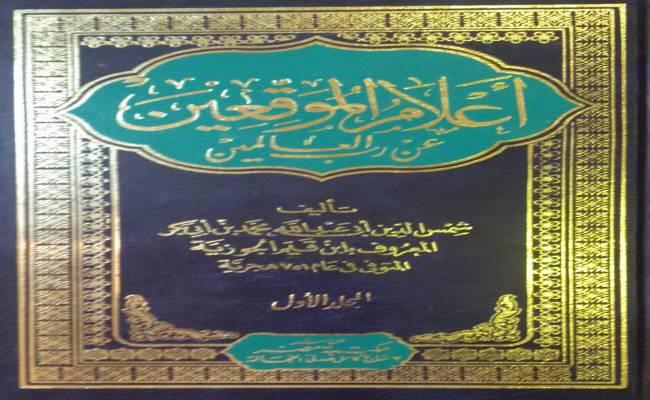 أعلام الموقعين
عن رب العالمين
تأليف
شمس الدين أبي عبد الله محمد بن أبي بكر
المعروف بابن قيم الجوزية
المتوفى في عام ٧٥١ هجرية
المجلد الأول